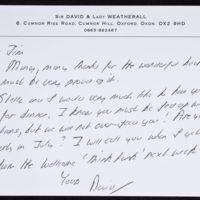 SIR DAVID & LADY WEATHERALL
8, CUMNOR RISE ROAD, CUMNOR HILL, OXFORD, OXON. OX2 9HD
0865-862467
Jim
Many, many thanks for the wonderful
must be very proud of it.
I would very much like to have you
for dinner. I know you must be
but we are not over-
in July? I will call you when I get
from the Wellcome 'think tank' next week
Yours
David